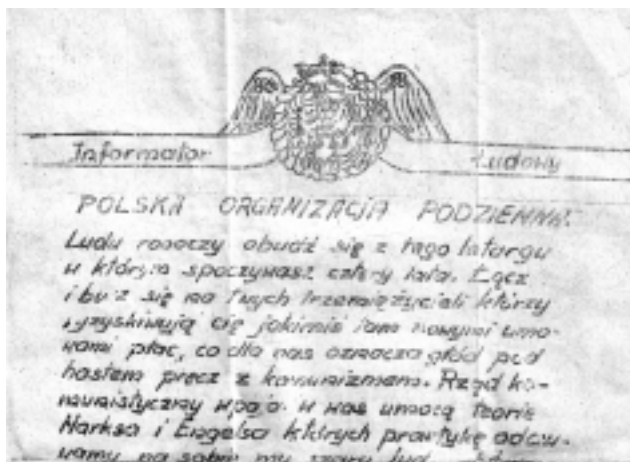 Informator Ludowy
POLSKA ORGANIZACJA PODZIEMNA.
Ludu roboczy obudź się z tego letargu
w którym spoczywasz cztery lata. Łącz
i bu z się na twych trzemiężycieli którzy
wyzyskiwują cię jakimiś tam nowymi umo-
wami płac, co dla nas oznacza głód pod
hasłem precz z komunizmem. Rząd ko-
munistyczny wpaja w nas umocą teorie
Marksa i Engelsa których praktykę odczu-
wamy na sobie my szary lud